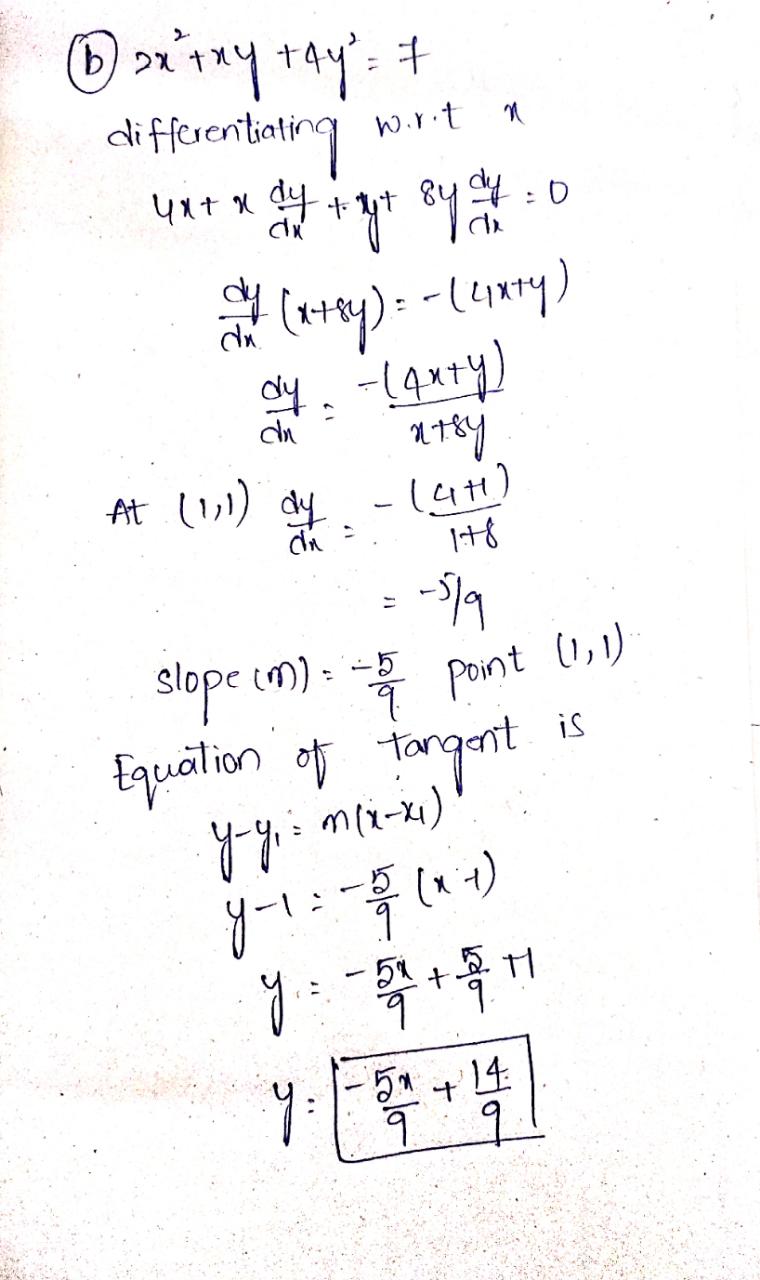 (b) 2x²+xy +4y² = 7
differentiating w.r.t x
4x+ x dy/dx + y+ 8y dy/dx = 0
dy/dx (x+8y) = -(4x+y)
dy/dx = -(4x+y)/x+8y
At (1,1) dy/dx = -(4+1)/1+8
= -5/9
slope (m) = -5/9 point (1,1)
Equation of tangent is
y-y₁ = m(x-x₁)
y-1 = -5/9 (x-1)
y = -5x/9 + 5/9 +1
y = -5x/9 + 14/9